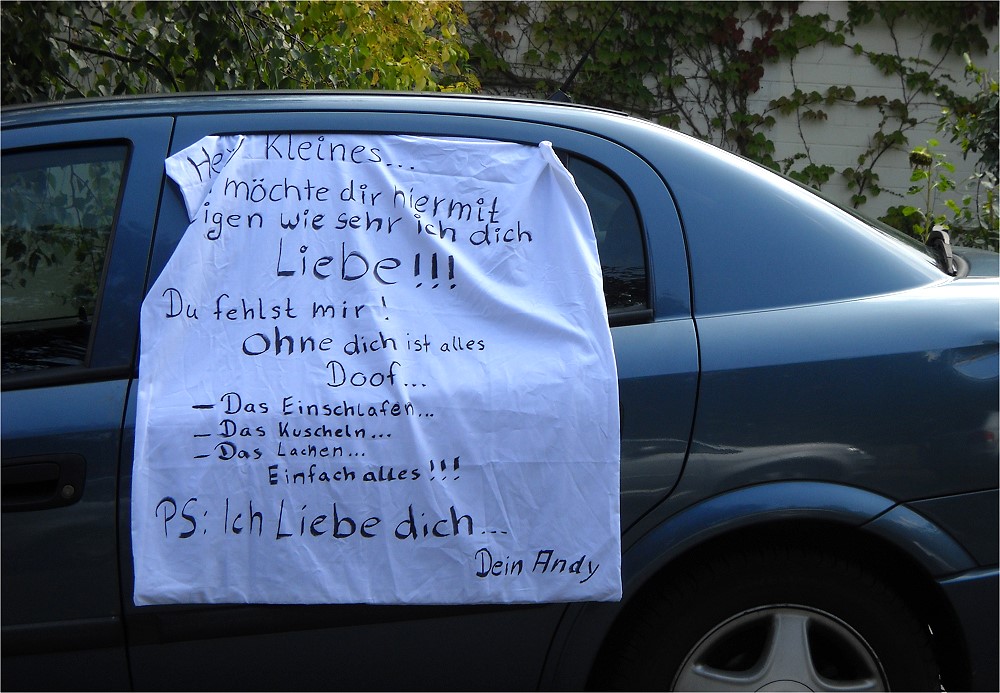 Hey Kleines...
möchte dir hiermit
igen wie sehr ich dich
Liebe!!!
Du fehlst mir!
Ohne dich ist alles
Doof...
- Das Einschlafen...
- Das Kuscheln...
- Das Lachen...
Einfach alles!!!
PS: Ich Liebe dich...
Dein Andy